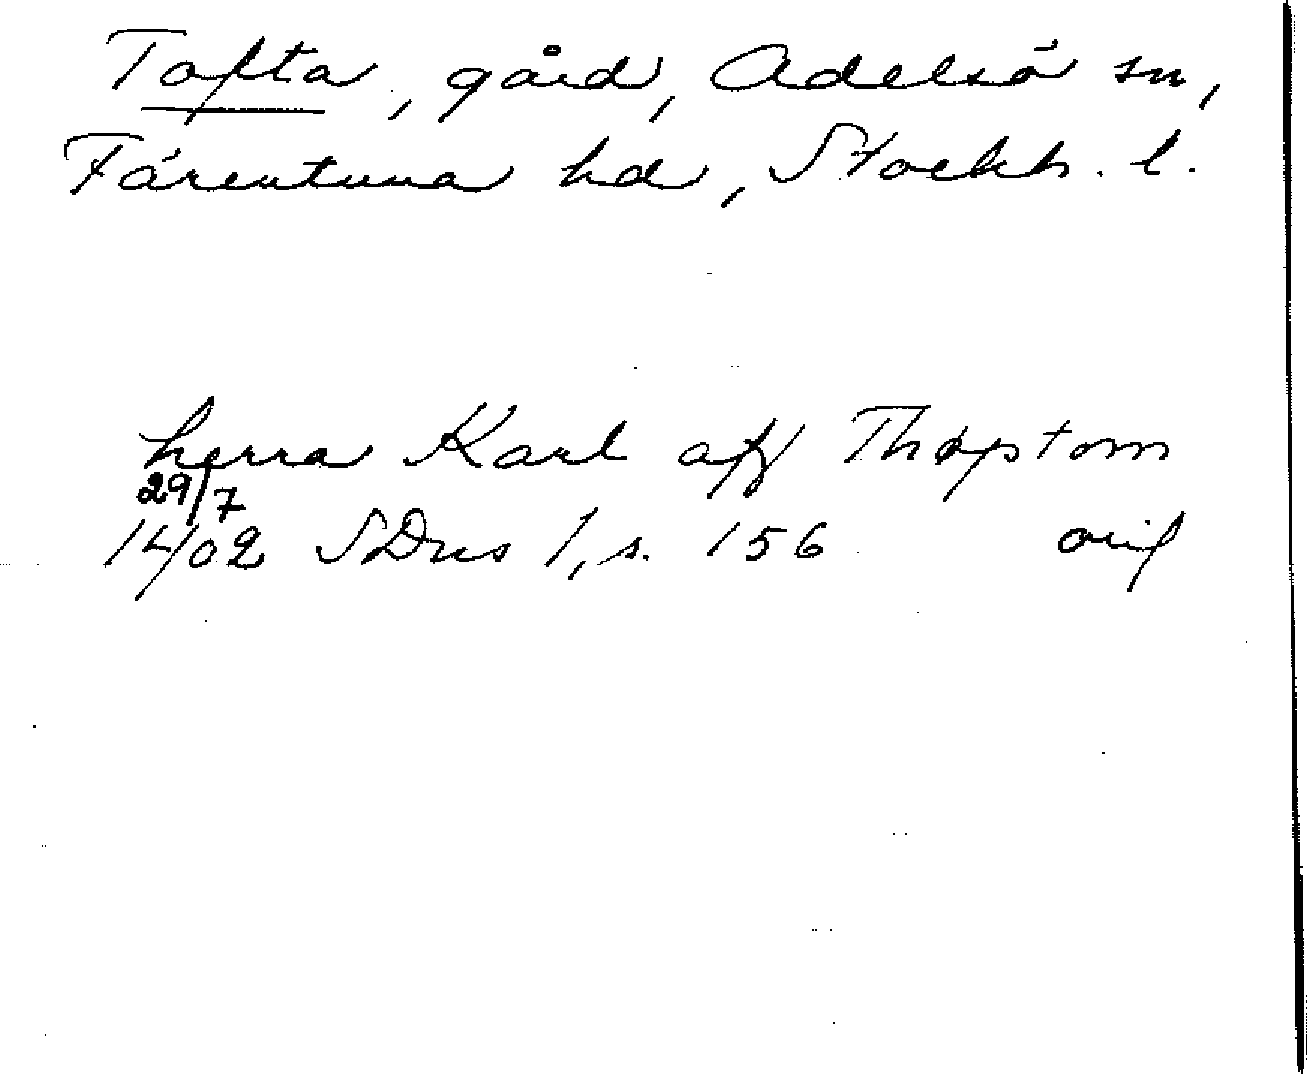 Tofta, gård, Adelsö sn,
Färentuna hd, Stockh. l.
herra Karl aff Thoptom
29/7
1402 SDns 1, s. 156 orig